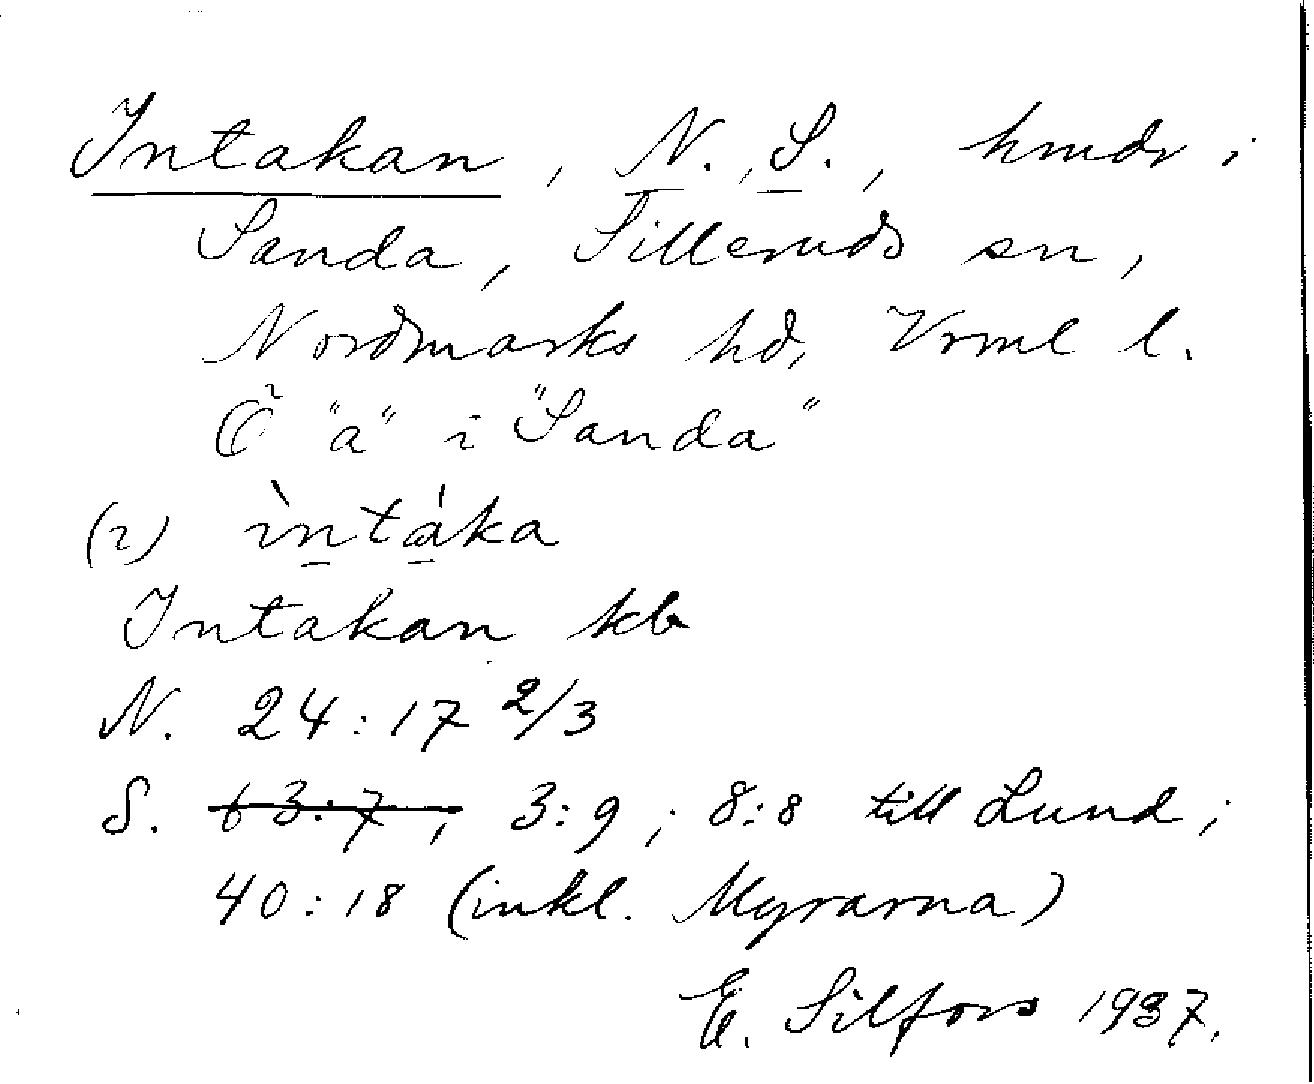 Intakan, N., S., hmdr i
Sanda, Silleruds sn,
Nordmarks hd, Vrml l.
Ö "a" i "Sanda"
(i) ìntáka
Intakan kb
N. 24:17 2/3
S. 63:7, 3:9; 8:8 till Lund;
40:18 (inkl. Myrarna)
E. Silfors 1937.